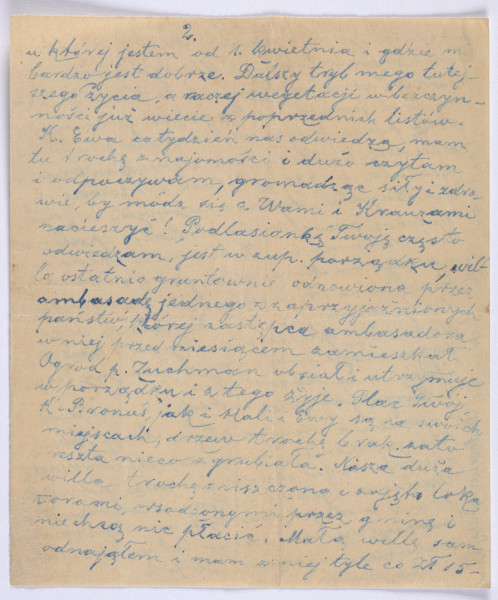 2.
u której jestem od 1. kwietnia i gdzie mi
bardzo jest dobrze. Dalszy tryb mego tutej-
szego życia, a raczej wegetacji w bezczyn-
ności już wiecie z poprzednich listów.
K. Ewa co tydzień nas odwiedza, mam
tu trochę znajomości i dużo czytam
i odpoczywam, gromadząc siły i zdro-
wie, by módz się z Wami i Krauzami
nacieszyć! Podlasiankę Twoją często
odwiedzam, jest w zup. porządku, wil-
la ostatnio gruntownie odnowiona przez
ambasadę jednego z zaprzyjaźnionych
państw, której zastępca ambasadora
w niej przed miesiącem zamieszkał
Ogród p. Zuchman obsiał i utrzymuje
w porządku i z tego żyje. Plac Twój
K. Bronuś, jak i Hali i Ewy są na swoich
miejscach, drzew trochę brak, zato
reszta nieco zgrubiała. Nasza duża
willa trochę zniszczona i zajęta loka
torami, wsadzonymi przez gminę i
nie chcą nic płacić. Małą willę sam
odnająłem i mam z niej tyle co zł 15-